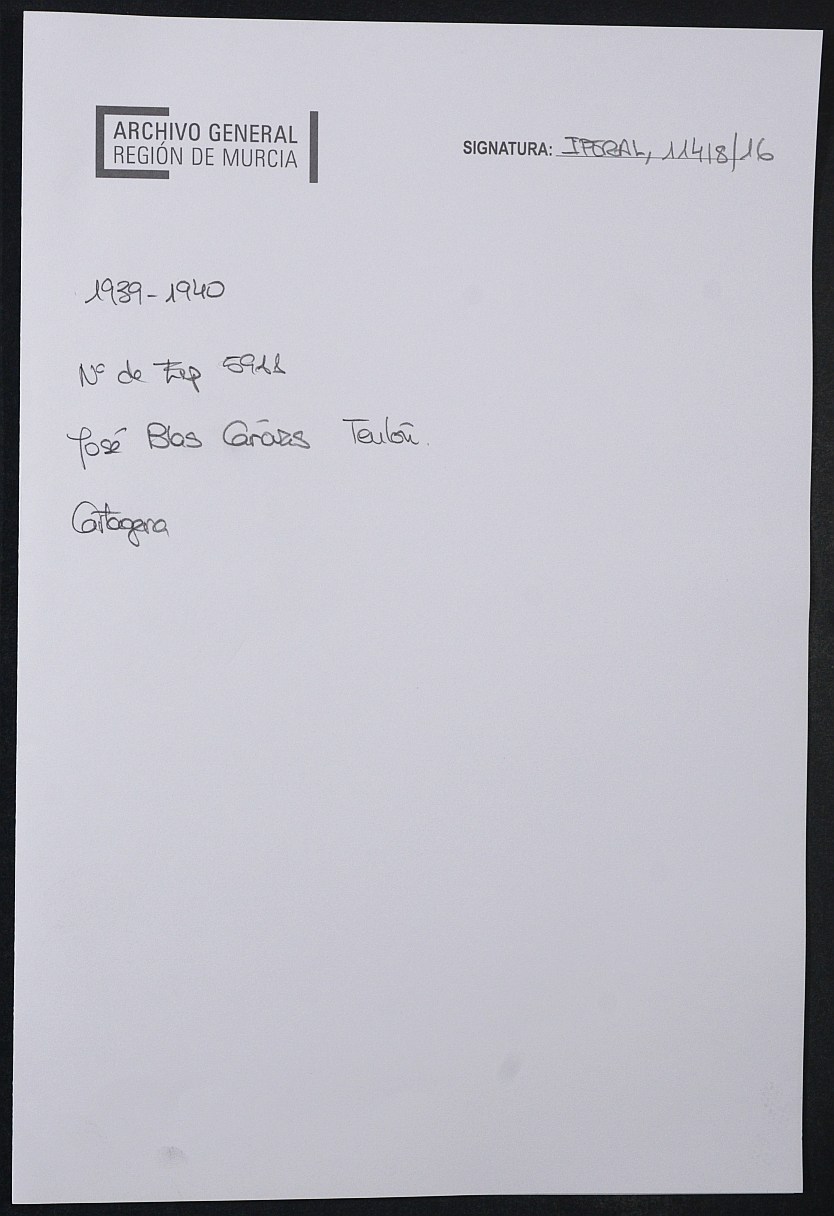 ARCHIVO GENERAL
REGIÓN DE MURCIA
SIGNATURA: IPERAL, 11418/16
1939-1940
Nº de Exp 5911
José Blas
Cartagena